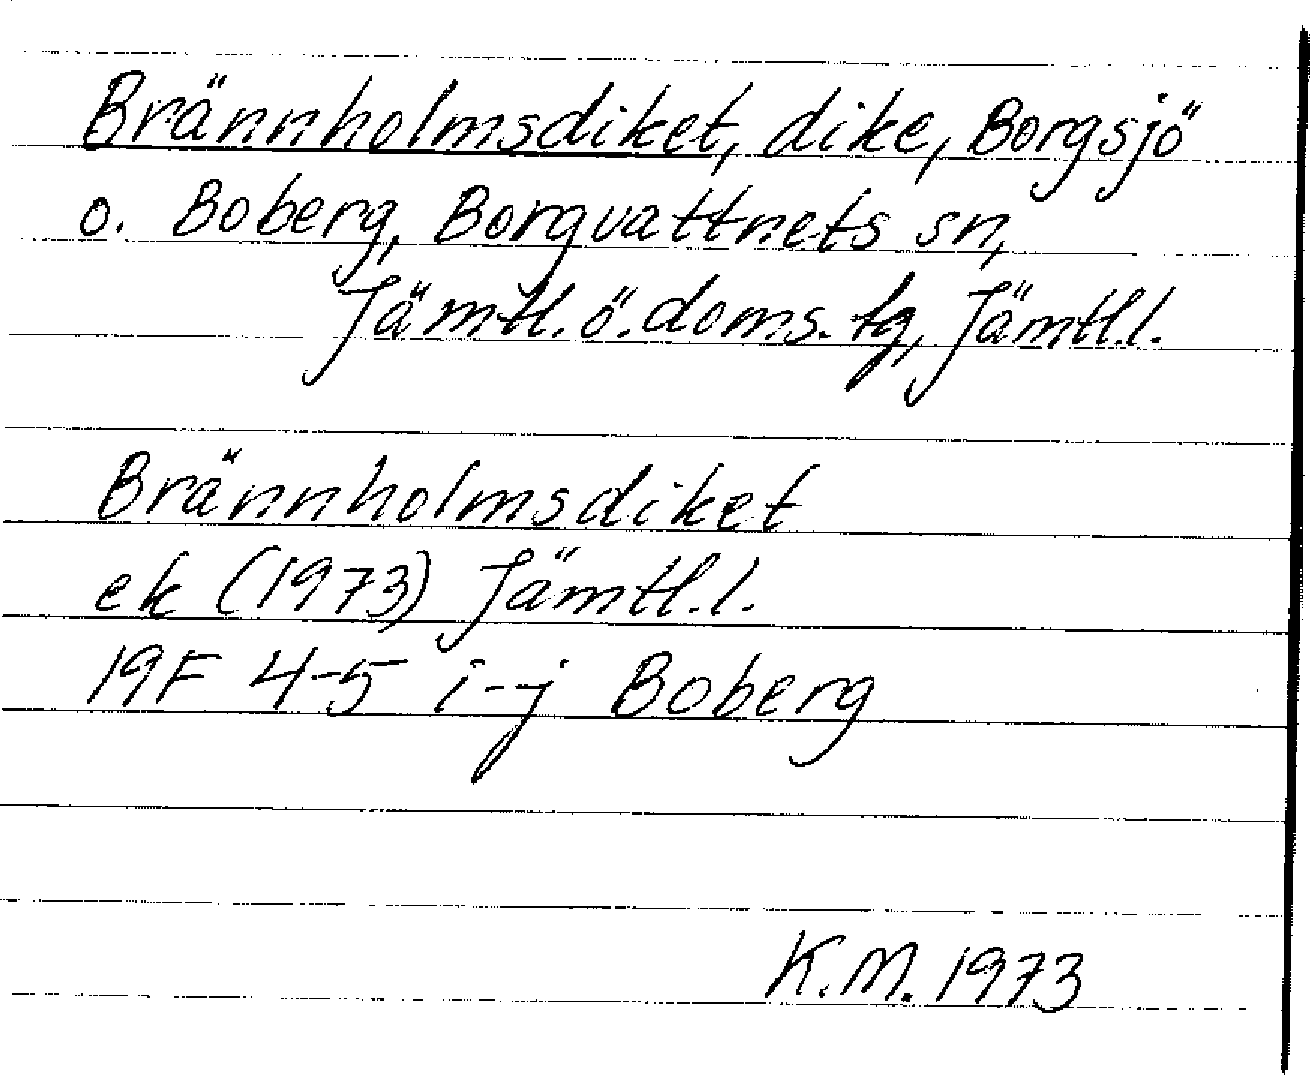 Brännholmsdiket, dike, Borgsjö
o. Boberg, Borgvattnets sn,
Jämtl. ö. doms. tg, Jämtl. l.
Brännholmsdiket
ek (1973) Jämtl. l.
19F 4-5 i-j Boberg
K.M. 1973